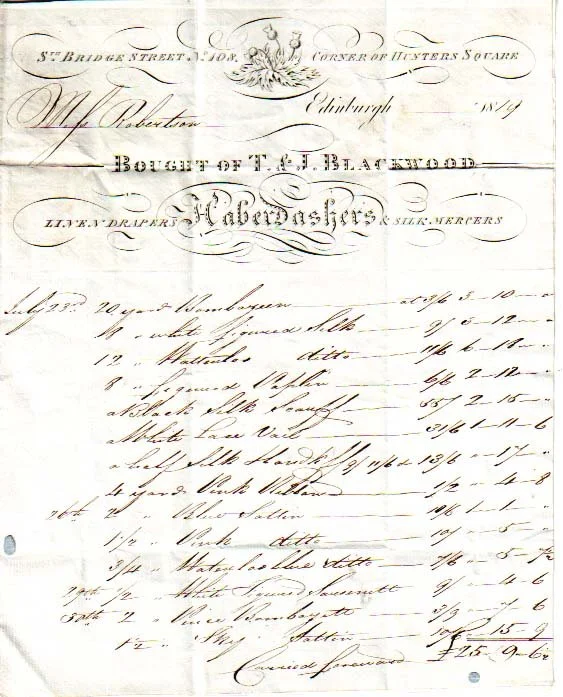 Sth. BRIDGE STREET No. 108, CORNER OF HUNTERS SQUARE
Edinburgh 1819
Miss Robertson
BOUGHT OF T. & J. BLACKWOOD
LINEN DRAPERS Haberdashers & SILK MERCERS
July 23rd 20 yards Bombazeen at 3/6 3 - 10 -
18 " white figured Silk
12 " Waterloo ditto 11/6 6 - 18 -
8 " figured 6/6 2 - 12 -
a Black Silk Scarff 55/ 2 - 15 -
a White Lace Vail 31/6 1 - 11 - 6
a half Silk Handkf 3/ 11/6 & 13/6 " - 17 "
4 yards Pink Ribbond 1/2 " - 4 - 8
26th 2 " Blue Sattin 10/6 1 - 1 -
1 1/2 " Pink ditto 10/ " - 5 -
3/4 " Waterloo blue ditto 7/6 " - 5 - 7½
29th 1/2 " White Figured Sarsenett 9/ " - 4 - 6
30th 2 " Bombazett 3/9 " - 7 - 6
Sattin - 15 - 9
Carried forward £25 - 9 - 6½